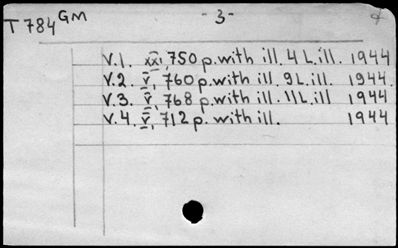 T784 GM - 3 -
V.1. xxi, 750 p. with ill. 4 L. ill. 1944
V.2. v, 760 p. with ill. 9 L. ill. 1944.
V.3. v, 768 p. with ill. 11 L. ill 1944
V.4. v, 712 p. with ill. 1944